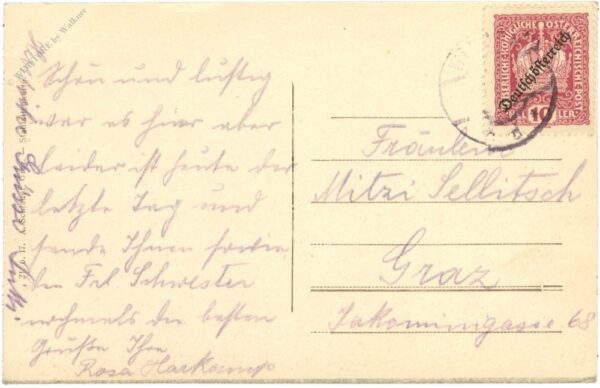 Schön und lustig
war es hier aber
leider ist heute der
letzte Tag und
sende Ihnen sowie
den Frl Schwester
nochmals die besten
Grüße Ihre
Rosa Harkamp
KAISERLICHE KÖNIGLICHE ÖSTERREICHISCHE POST
Deutschösterreich
10 HELLER
Fräulein
Mitzi Sellitsch
Graz
Jakominigasse 68
by Walkner